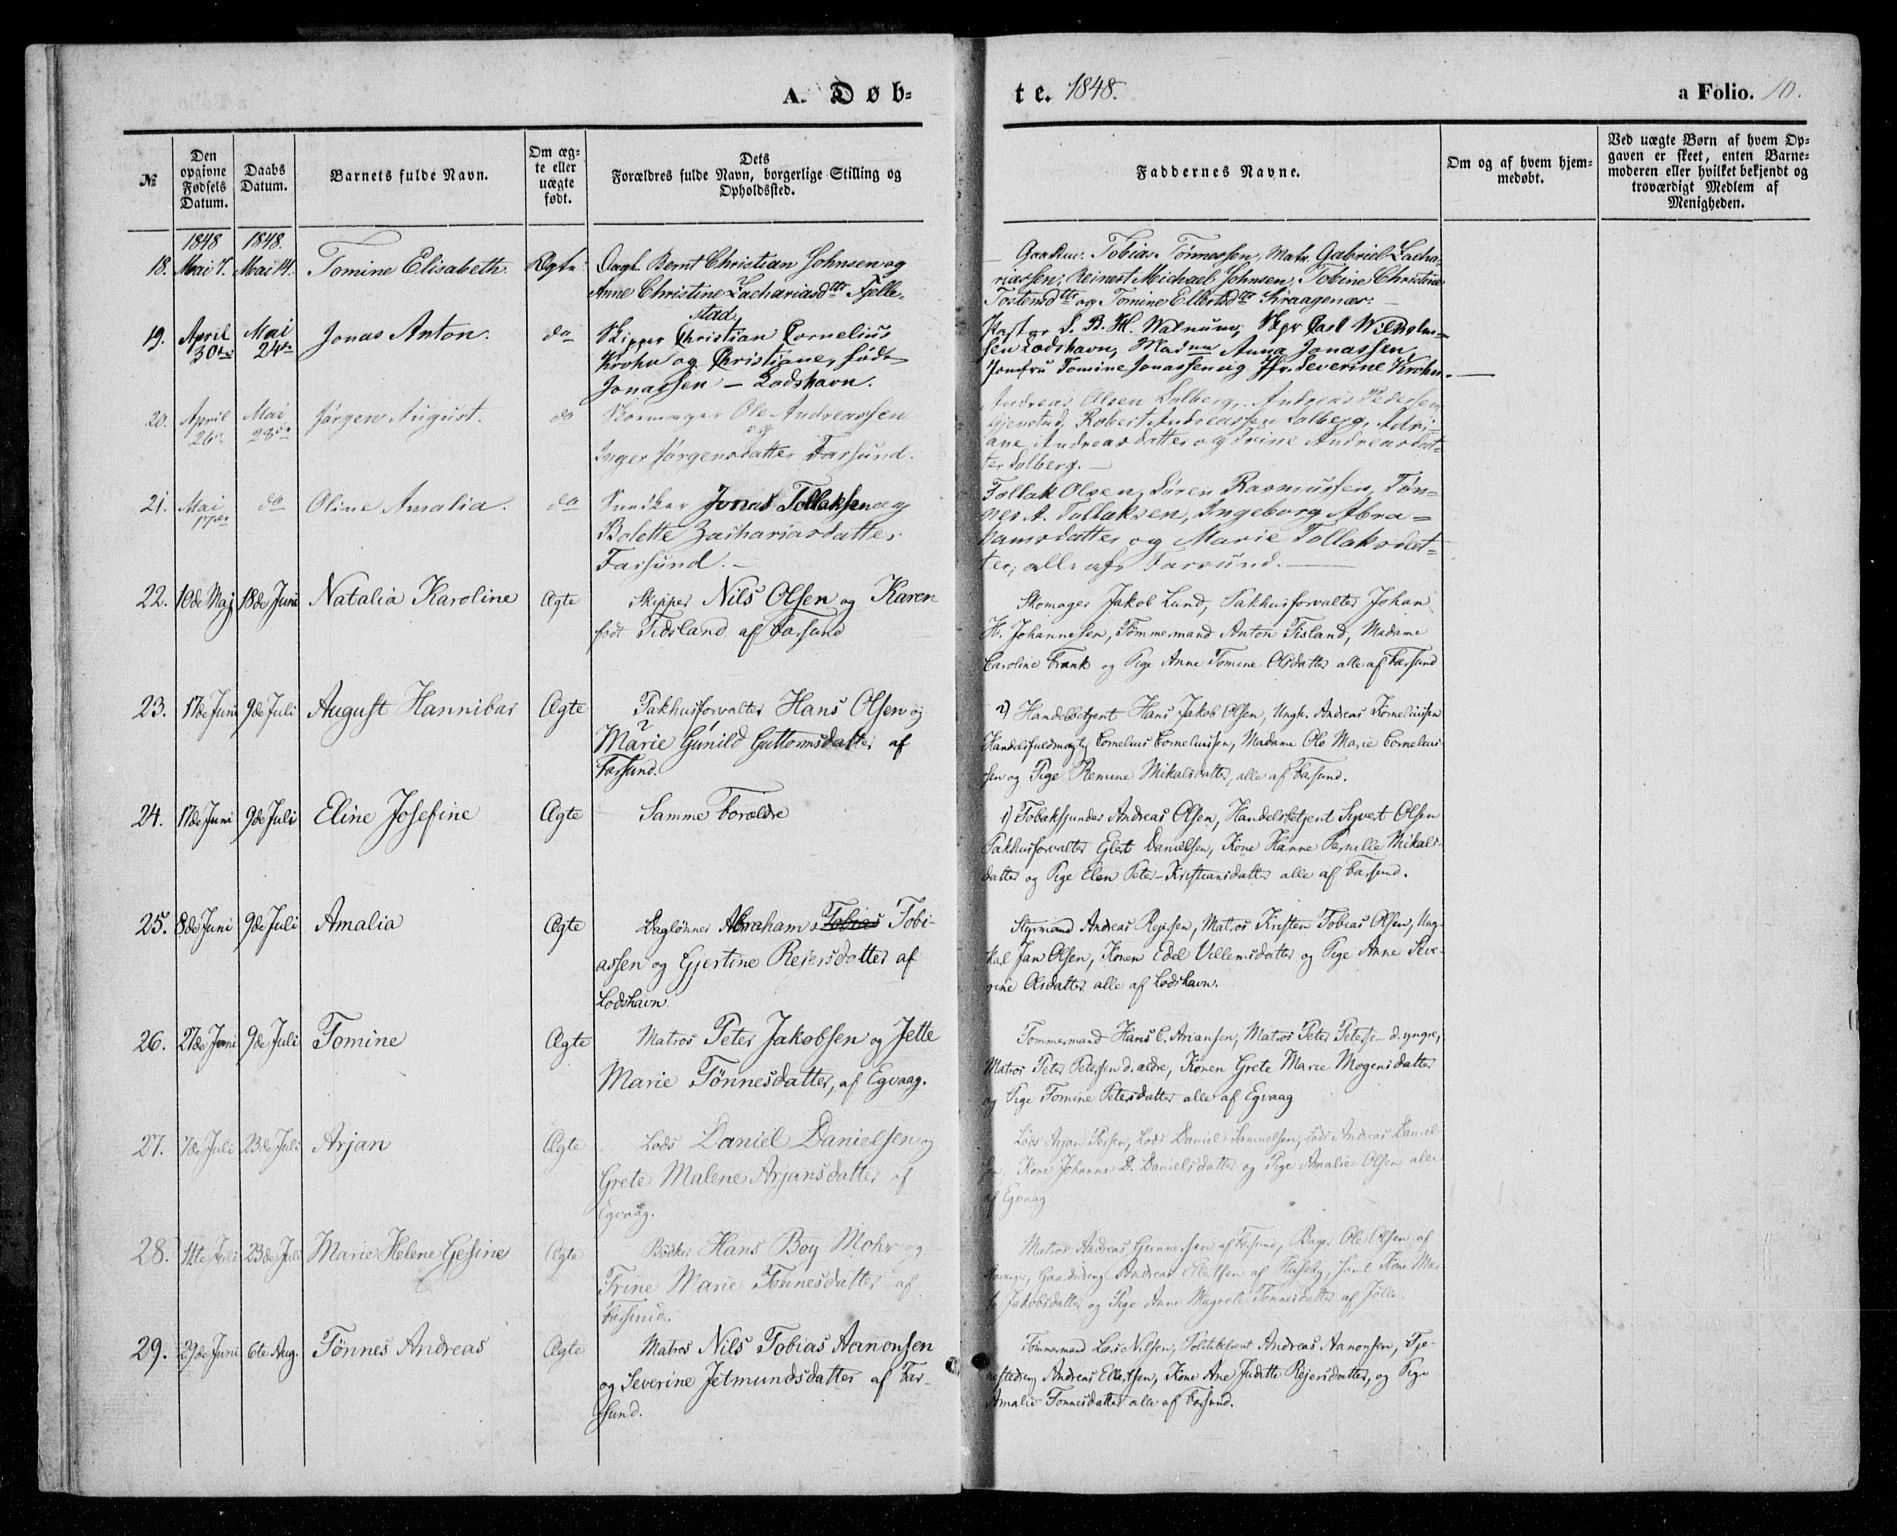 A. Døb-
te. 1848.
a Folio. 10.
№
Den opgivne Fødsels Datum.
Daabs Datum.
Barnets fulde Navn.
Om ægte eller uægte født.
Dets Forældres fulde Navn, borgerlige Stilling og Opholdssted.
Faddernes Navne.
Om og af hvem hjemmedøbt.
Ved uægte Børn af hvem Opgaven er skeet, enten Barnemoderen eller hvilket bekjendt og troværdigt Medlem af Menigheden.
1848 1848.
18. Mai 7. Mai 14. Tomine Elisabeth. Ægte Dagl. Bernt Christian Johnsen og
Anne Christine Zachariasdtr Fjelle-
stad
Tobias Tønnessen, Matr. Gabriel Zacha-
riassen, Reinert Michael Johnsen, Tobine Christine
Tostensdtr og Tomine Elbertsdtr Kraagenæs.
19. April 30te Mai 24de Jonas Anton. do Skipper Christian Cornelius
Krohn og Christiane, født
Jonassen. – Lodshavn.
Pastor S. B. H. Walnum, Skpr Carl Wilhelm-
sen Lodshavn, Madme Anna Jonassen
Jomfru Tomine Jonassen og Jfr. Severine Krohn.
20. April 26de Mai 28de Jørgen August. do Skomager Ole Andreassen
og
Inger Jørgensdatter Farsund.
Andreas Olsen Solberg, Andreas Pedersen
Robert Andreassen Solberg, Adri-
ane Andreasdatter og Trine Andreasdat-
ter Solberg. –
21. Mai 17de do Oline Amalia. do Snedker Jonas Tollaksen og
Bolette Zachariasdatter
Farsund. –
Tollak Olsen, Søren Rasmussen, Tøn-
nes A. Tollaksen, Ingeborg Abra-
hamsdatter og Marie Tollaksdat-
ter, alle af Farsund.
22. 10de Maj 18de Juni Natalia Karoline Ægte Skipper Nils Olsen og Karen
født Tidsland af Farsund
Skomager Jakob Lund, Pakhusforvalter Johan
H. Johannesen, Tømmermand Anton Tisland, Madame
Caroline Frank og Pige Anne Tomine Olsdatter alle af Farsund
23. 17de Juni 9de Juli August Hannibal Ægte Pakhusforvalter Hans Olsen og
Marie Gunild Guttormsdatter af
Farsund.
2) Handelsbetjent Hans Jakob Olsen, Ungk. Andreas Korneliussen
Handelsfuldmægtig Cornelius Corneliussen, Madame Ole Marie Cornelius-
sen og Pige Remine Mikalsdatter, alle af Farsund.
24. 17de Juni 9de Juli Eline Josefine Ægte Samme Forældre
1) Tobaksspinder Andreas Olsen, Handelsbetjent Syvert Olsen
Pakhusforvalter Eilert Danielsen, Kone Hanne Pernille Mikals-
datter og Pige Elen Peter-Kristiansdatter alle af Farsund.
25. 8de Juni 9de Juli Amalia Ægte Daglønner Abraham Tobias Tobi-
assen og Gjertine Rejersdatter af
Lodshavn.
Styrmand Andreas Rejersen, Matros Kristen Tobias Olsen, Ung-
karl Jan Olsen, Konen Edel Villemsdatter og Pige Anne Seve-
rine Olsdatter alle af Lodshavn.
26. 27de Juni 9de Juli Tomine Ægte Matros Peter Jakobsen og Jette
Marie Tönnesdatter, af Egvaag.
Tømmermand Hans C. Ariansen, Matros Peter Petersen d. yngre,
Matros Peter Petersen d. ældre, Konen Grete Marie Mogensdatter
og Pige Tomine Petersdatter alle af Egvaag
27. 7de Juli 23de Juli Arjan Ægte Lods Daniel Danielsen og
Grete Malene Arjansdatter af
Egvaag.
Lods Arjan Persen, Lods Daniel Samuelsen, Lods Andreas Daniel-
sen, Kone Johanne D. Danielsdatter og Pige Amalie Olsen alle
af Egvaag
28. 11te Juli 23de Juli Marie Helene Gesine Ægte Bødker Hans Boy Mohr og
Trine Marie Tønnesdatter af
Farsund.
Matros Andreas Gunnersen af Farsund, Ole Olsen af
Gaardbrug. Andreas Eilertsen af Huseby, samt Kone Mar-
Jakobsdatter og Pige Anne Magrete Tønnesdatter af Jølle.
29. 29de Juni 6te Aug. Tønnes Andreas Ægte Matros Nils Tobias Aanonsen
og Severine Jetmundsdatter af Far-
sund.
Tømmermand Lars Nilsen, Politibetjent Andreas Aanonsen, Tje-
Andreas Ellertsen, Kone Ane Judatte Rejersdatter, og Pige
Amalie Tønnesdatter alle af Farsund.